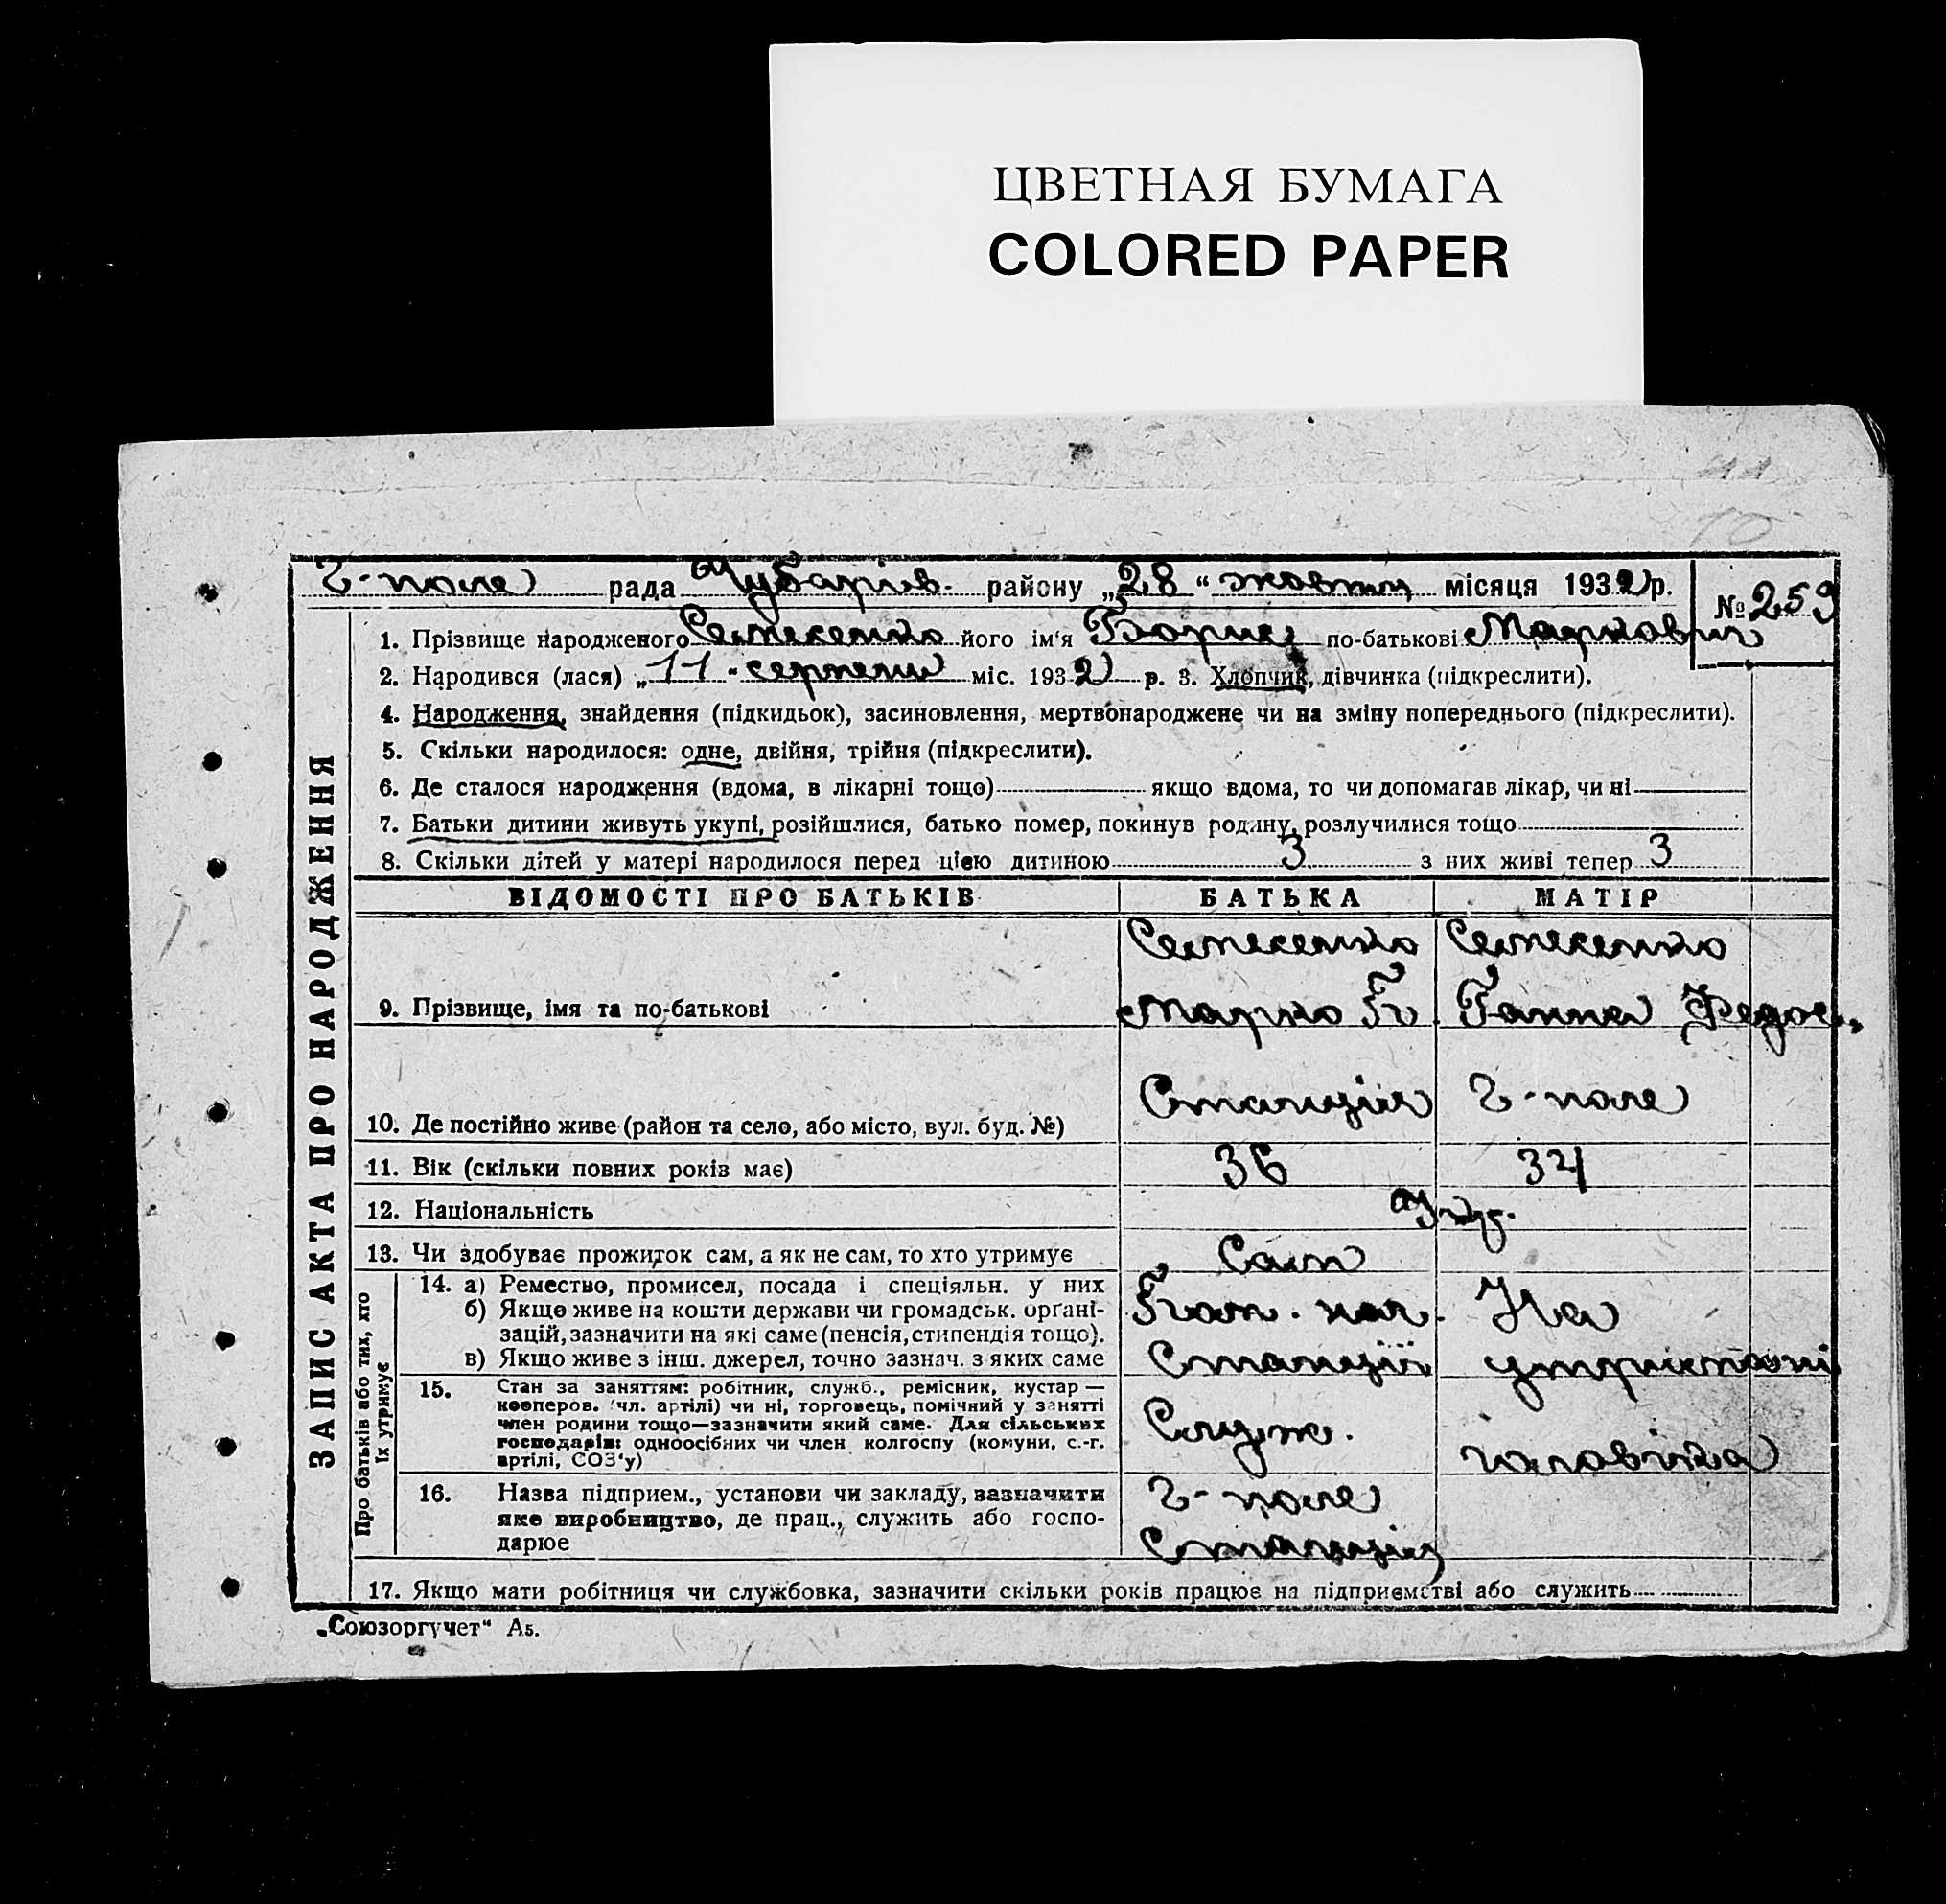 ЦВЕТНАЯ БУМАГА
COLORED PAPER
Г-поле рада Чубарів. району „28“ жовтня місяця 1932 р. № 259
ЗАПИС АКТА ПРО НАРОДЖЕННЯ
1. Прізвище народженого його ім‘я Борис по-батькові Маркович
2. Народився (лася) „11“ серпня міс. 1932 р. 3. Хлопчик, дівчинка (підкреслити).
4. Народження, знайдення (підкидьок), засиновлення, мертвонароджене чи на зміну попереднього (підкреслити).
5. Скільки народилося: одне, двійня, трійня (підкреслити).
6. Де сталося народження (вдома, в лікарні тощо) якщо вдома, то чи допомагав лікар, чи ні
7. Батьки дитини живуть укупі, розійшлися, батько помер, покинув родину, розлучилися тощо
8. Скільки дітей у матері народилося перед цією дитиною 3 з них живі тепер 3
ВІДОМОСТІ ПРО БАТЬКІВ БАТЬКА МАТІР
9. Прізвище, імя та по-батькові Марко Ів. Ганна Федос.
10. Де постійно живе (район та село, або місто, вул. буд. №) Станція Г-поле
11. Вік (скільки повних років має) 36 34
12. Національність Укр.
13. Чи здобуває прожиток сам, а як не сам, то хто утримує Сам
Про батьків або тих, хто їх утримує
14. а) Ремество, промисел, посада і спеціяльн. у них
б) Якщо живе на кошти держави чи громадськ. орґані- нач. На
зацій, зазначити на які саме (пенсія, стипендія тощо).
в) Якщо живе з інш. джерел, точно зазнач. з яких саме Станції утриманні
15. Стан за заняттям: робітник, служб., ремісник, кустар —
кооперов. (чл. артілі) чи ні, торговець, помічний у занятті
член родини тощо—зазначити який саме. Для сільських Служ.
господарів: одноосібних чи член колгоспу (комуни, с.-г. чоловіка
артілі, СОЗ‘у)
16. Назва підприєм., установи чи закладу, зазначити Г-поле
яке виробництво, де прац., служить або госпо-
дарює Станція
17. Якщо мати робітниця чи службовка, зазначити скільки років працює на підприємстві або служить
„Союзоргучет“ А5.